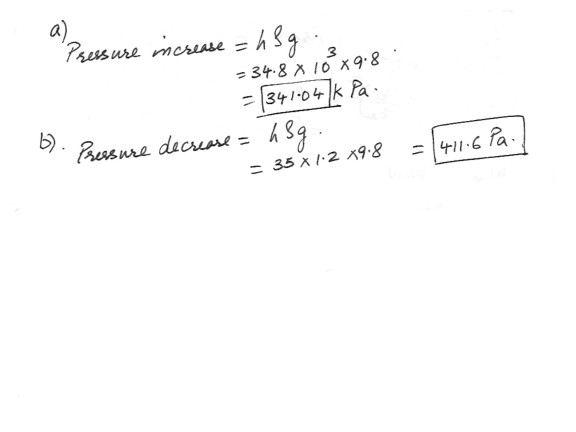 a)
Pressure increase = hρg.
= 34.8 × 10³ × 9.8
= 341.04 k Pa.
b). Pressure decrease = hρg.
= 35 × 1.2 × 9.8 = 411.6 Pa.